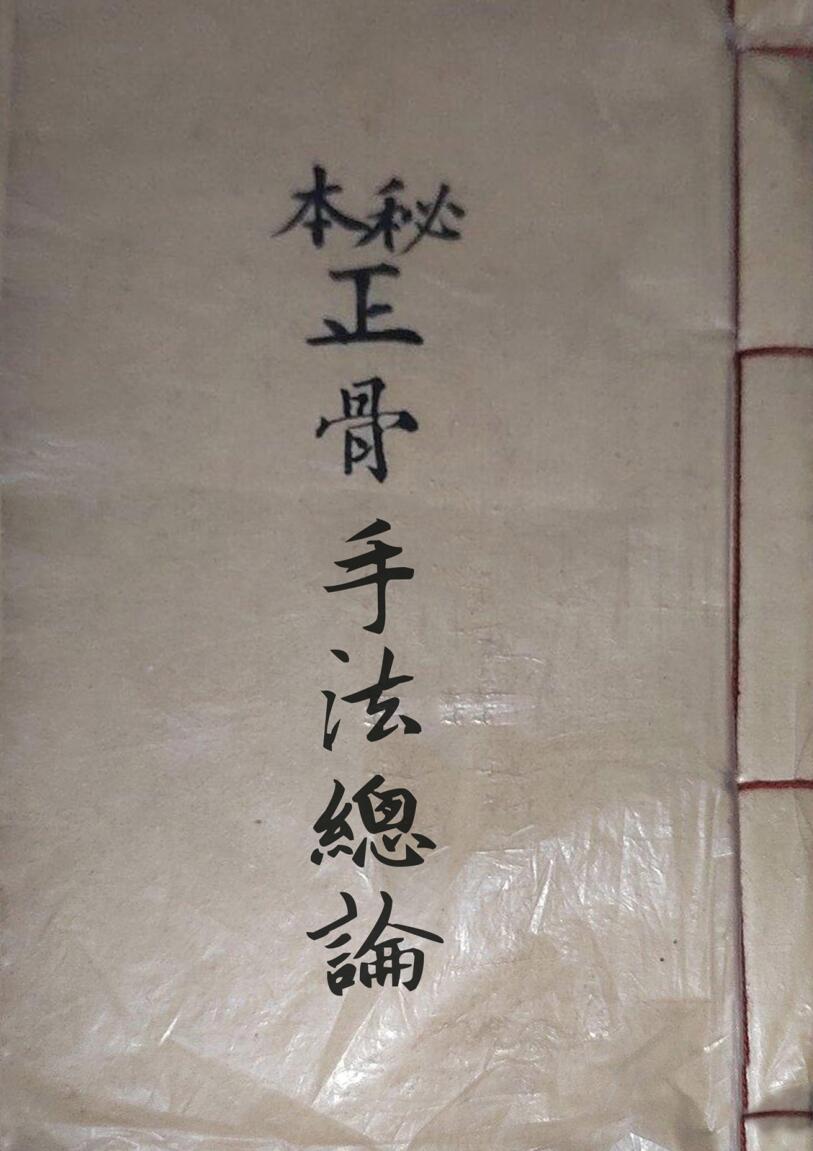 秘本
正骨手法總論